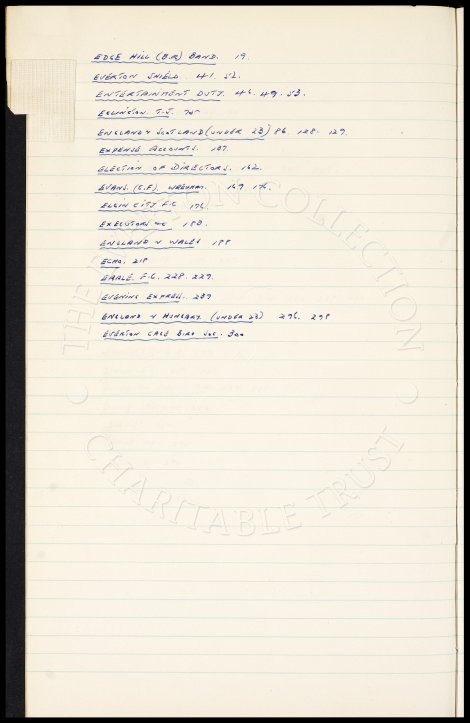 EDGE HILL (B.R) BAND. 19.
EVERTON SHIELD. 41. 52.
ENTERTAINMENT DUTY. 46. 49. 53.
EGLINGTON. T.J. 75
ENGLAND v SCOTLAND (UNDER 23) 86 128. 129.
EXPENSE ACCOUNTS. 107.
ELECTION OF DIRECTORS. 162.
EVANS. (C.F). WREXHAM. 169 176.
ELGIN CITY F.C 176.
EXECUTORS 180.
ENGLAND v WALES 188
ECHO. 218
EARLE. F.C. 228. 229.
EVENING EXPRESS. 239
ENGLAND v HUNGARY (UNDER 23) 296. 298
EVERTON CAGE BIRD SOC. 300
THE COLLECTION
CHARITABLE TRUST